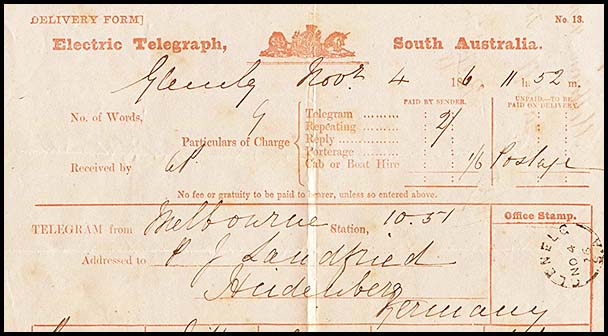 DELIVERY FORM] No. 13.
Electric Telegraph, South Australia.
Glenelg Novr. 4 186 11 h 52 m.
PAID BY SENDER. UNPAID.—TO BE PAID ON DELIVERY.
No. of Words, 9
Particulars of Charge
Telegram ..........
Repeating ..........
Reply ..........
Porterage ..........
Cab or Boat Hire
2/
1/6 Postage
Received by
No fee or gratuity to be paid to bearer, unless so entered above.
TELEGRAM from Melbourne Station, 10.51
Office Stamp.
GLENELG
NO 4
Addressed to P J Landfried
Heidenberg
Germany